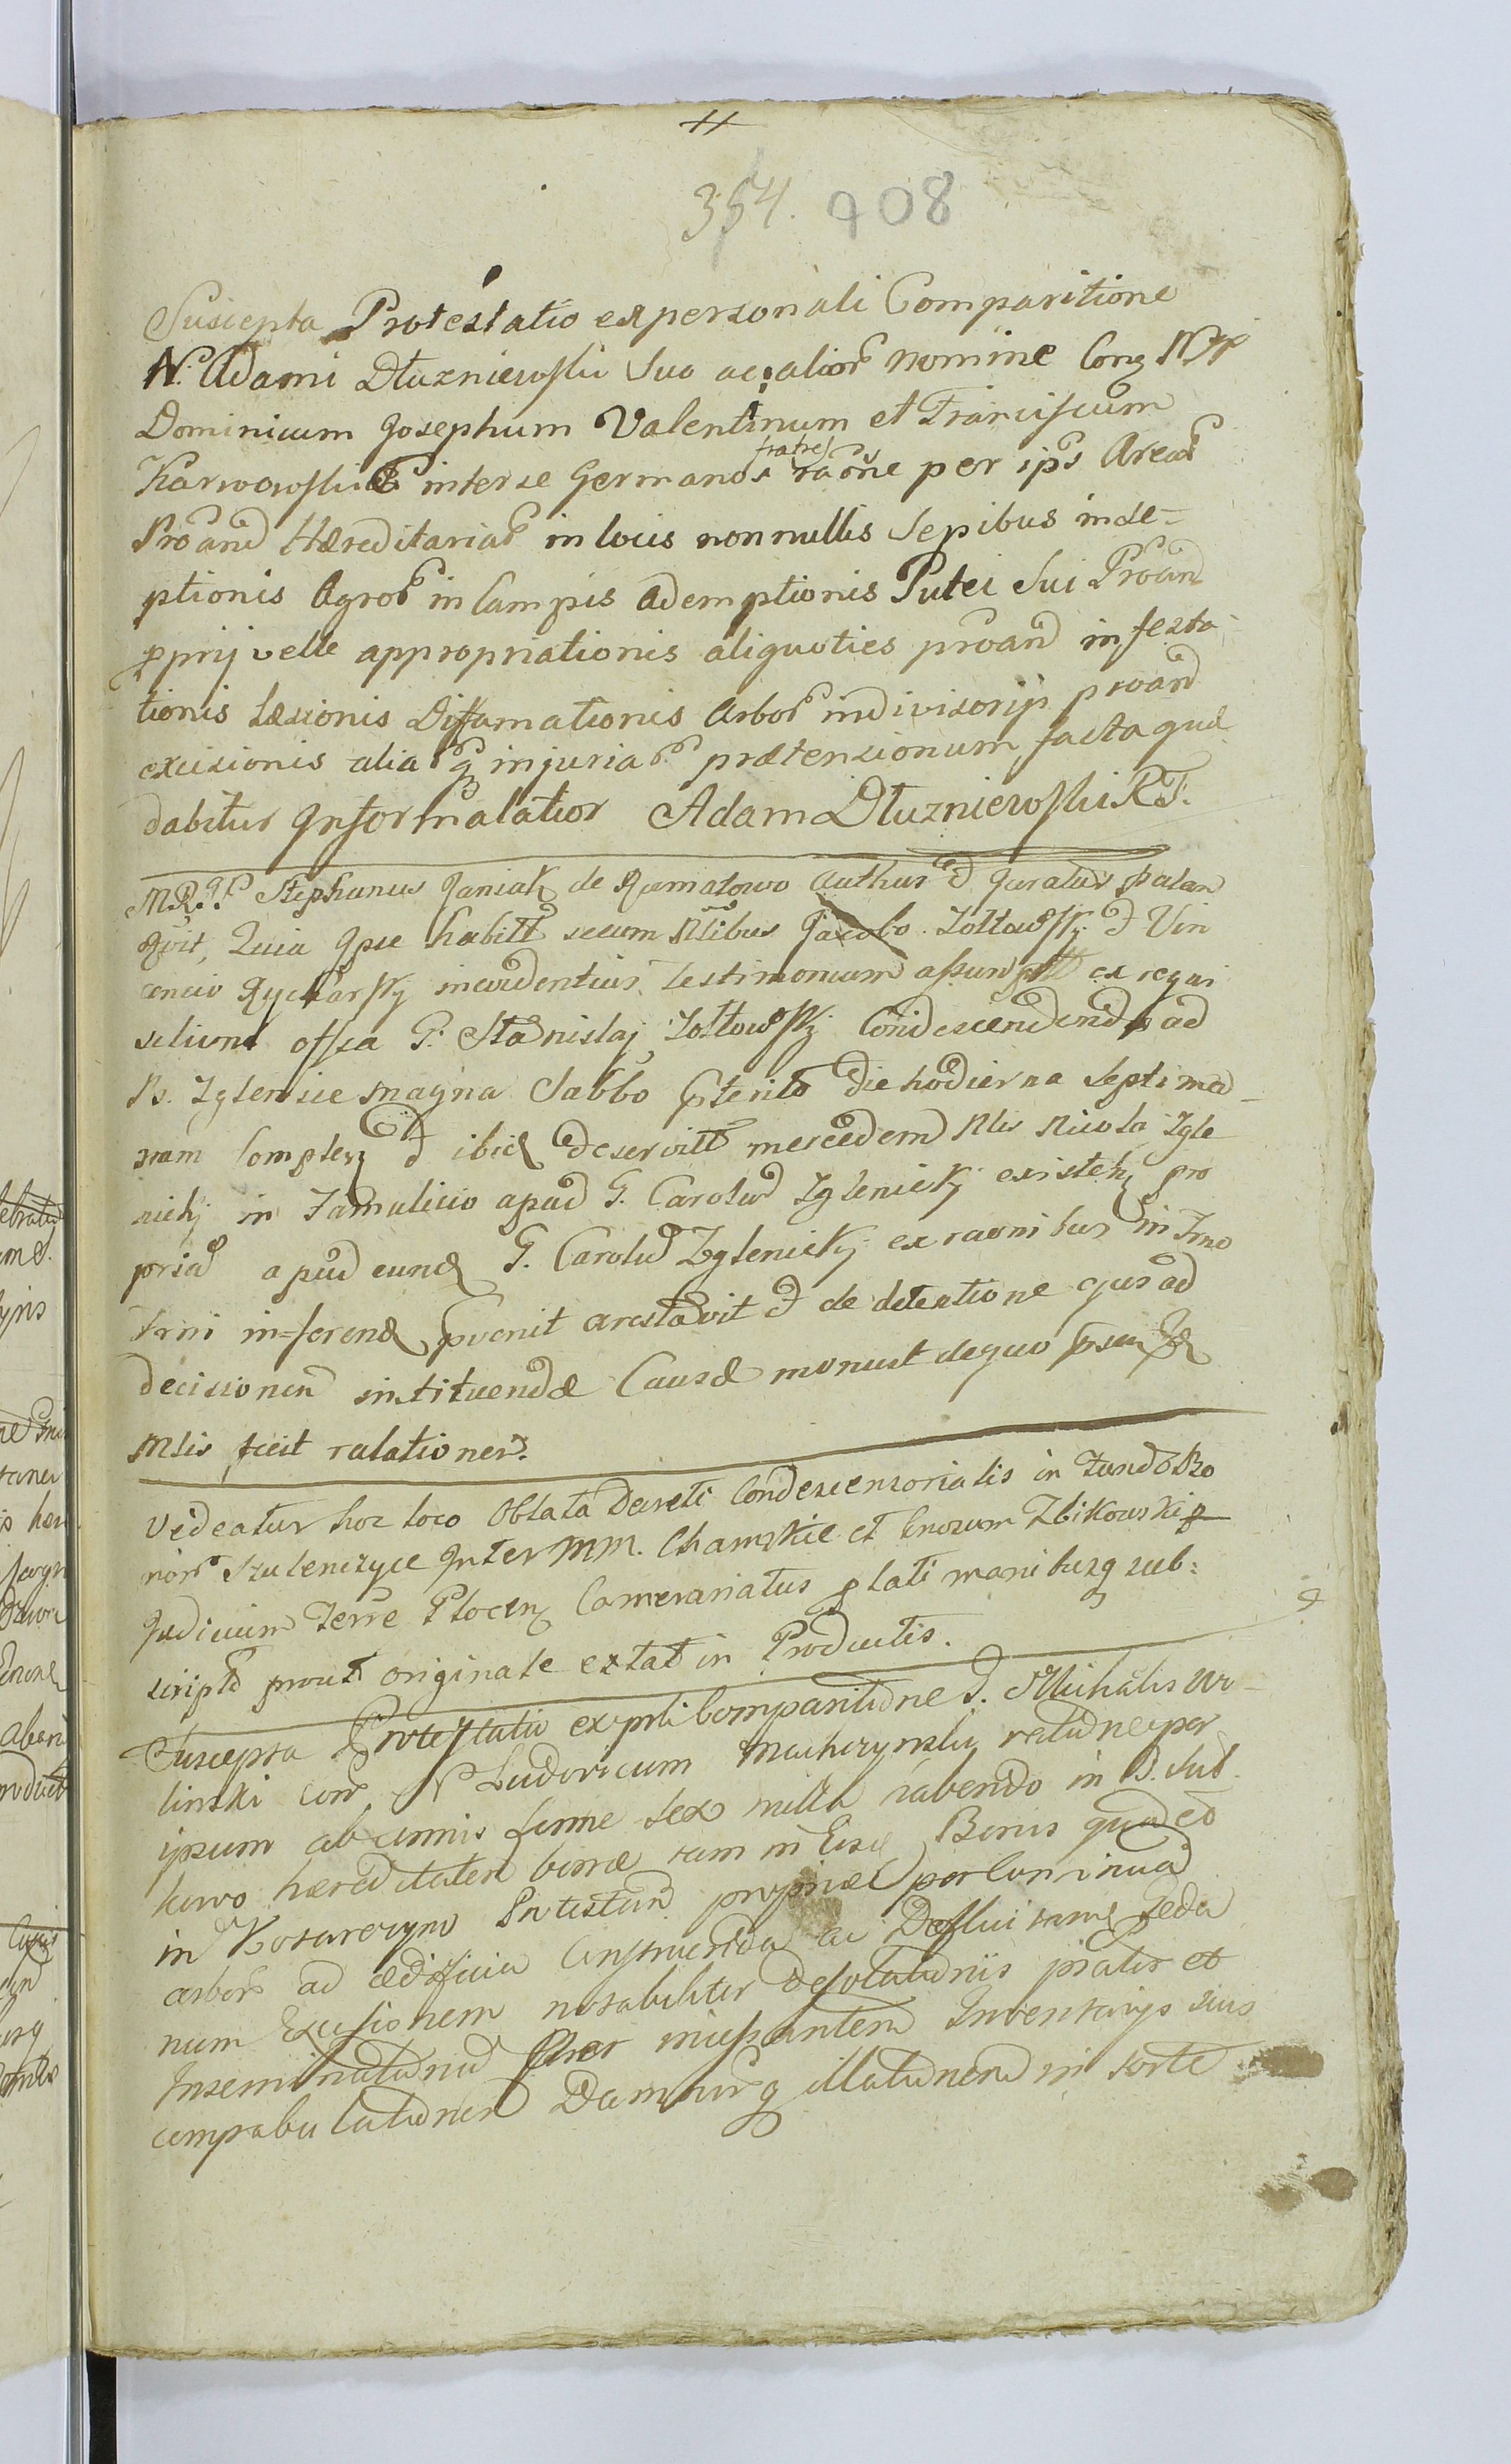 354. 908
Suscepta Protestatio ex personali Comparitione
N. Adami Dłuzniewski Suo ac alior nomine Cong NN
Dominicum Josephum Valentinum et Franciscum
Karwowskie inter se Germanos fratres raõne per ips Area
Proãnd Hæreditaria in locis nonnullis Sepibus inde-
ptionis Agror in Campis Ademptionis Putei Sui Proãnd
pprij velle appropriationis aliquoties proãnd infesta-
tionis Læsionis Diffamationis Arbor indivisorip proãnd
excisionis alia q injuria prætensionum facta quæ
dabitur Informalatior Adam Dłuzniewski RT.
MRgP Stephanus Janiak de Rumatowo authus d juratus palan
Quia Ipse habitt secum Nlibus Jacobo Zołtowskj d Vin
cencio Rycharskj in evidentius testimonium assumptt ex requi
selione offea G. Stanislaj Zołtowskj Condescendendo ad
Bs. Zglenice magna Sabbo pterito die hodierna Septima-
nam ibid deservitt mercedem Nlis Nicola Zgle
nickj in Famulicio apud G. Carolud Zglenickj existen pro
pria apud eund G. Carolud Zglenickj ex raonibus in Tmo
Trni in-ferend pvenit arestavit d de detentione ejus ad
decisionem instituendæ Causæ monuit de quo
Mlis fecit ralationem.
Videatur hoc loco Oblata Decreti Condescensorialis in Fundo Bo
nor Szulenczyce Inter MM. Chamskie et Gnosum Zbikowski p
Judicium Terre Plocen Camerariatus plati manibusq sub:
script prout originale extat in Productis.
Suscepta Protestatio ex prli Comparitione G. Michalis Wo-
linski con N Ludovicum Macherzynski ratione per
ipsum ab annis ferme sex milla habendo in B. Sul-
kowo hæreditatem bonæ tam in Eisd Bonis quad et
in Kosarezyno Protestan propriæ per Continuad
arbor ad ædificia Construenda ac
num Excisionem notabiliter desolationis pratis et
Inseminationis Inventarijs suis
compabulationem Damnorq illationem in sorte